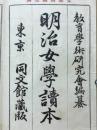 教育學術研究會編纂
明治女學讀本
東京 同文館藏版